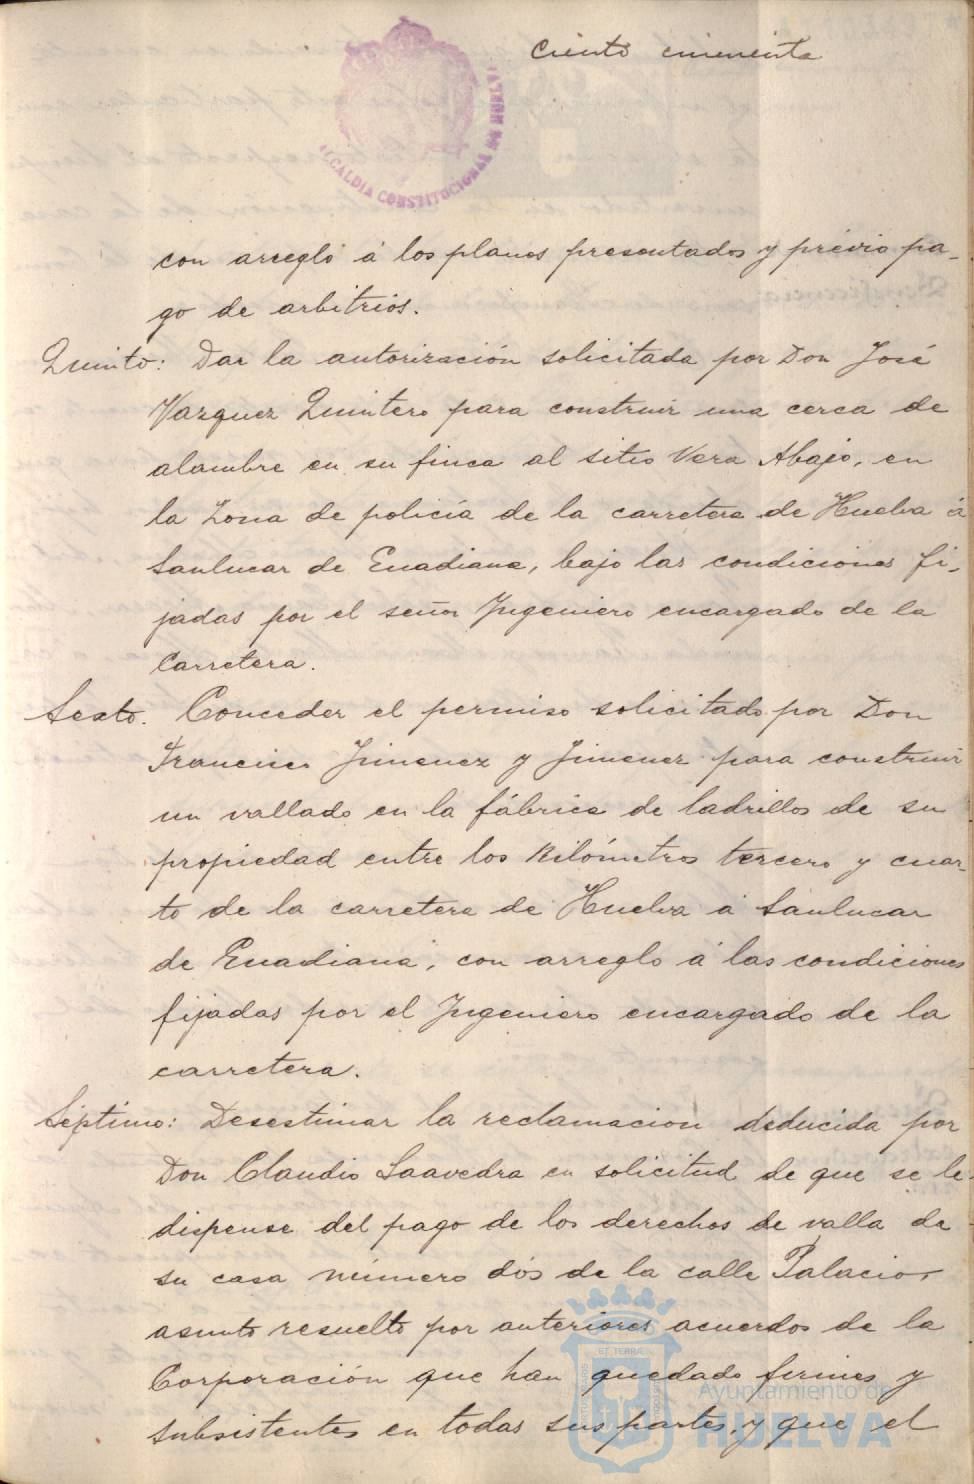 Ciento cincuenta
ALCALDIA CONSTITUCIONAL DE HUELVA
con arreglo á los planos presentados y prévio pa-
go de arbitrios.
Quinto: Dar la autorización solicitada por Don José
Vazquez Quintero para construir una cerca de
alambre en su finca al sitio Vera Abajo, en
la Zona de policía de la carretera de Huelva á
Sanlucar de Guadiana, bajo las condiciones fi-
jadas por el señor Ingeniero encargado de la
Carretera.
Sexto. Conceder el permiso solicitado por Don
Francisco Jimenez y Jimenez para construir
un vallado en la fábrica de ladrillos de su
propiedad entre los Kilómetros tercero y cuar-
to de la carretera de Huelva á Sanlucar
de Guadiana, con arreglo á las condiciones
fijadas por el Ingeniero encargado de la
carretera.
Séptimo: Desestimar la reclamacion deducida por
Don Claudio Saavedra en solicitud de que se le
dispense del pago de los derechos de valla de
su casa número dós de la calle Palacio,
asunto resuelto por anteriores acuerdos de la
Corporación que han quedado firmes y
subsistentes en todas sus partes, y que el
Ayuntamiento de
HUELVA